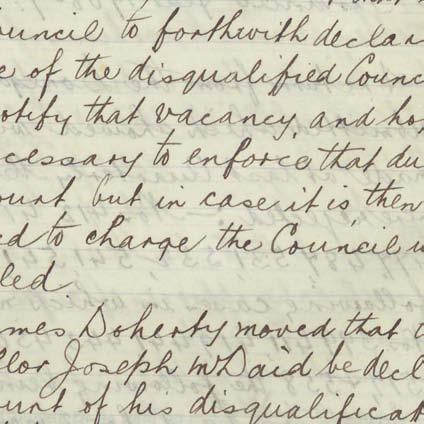 ouncil to forthwith declar
e of the disqualified Counc
otify that vacancy, and ho
cessary to enforce that du
ourt, but in case it is then
ed to charge the Council w
led.
mes Doherty moved that
llor Joseph McDaid be decl
ount of his disqualificat